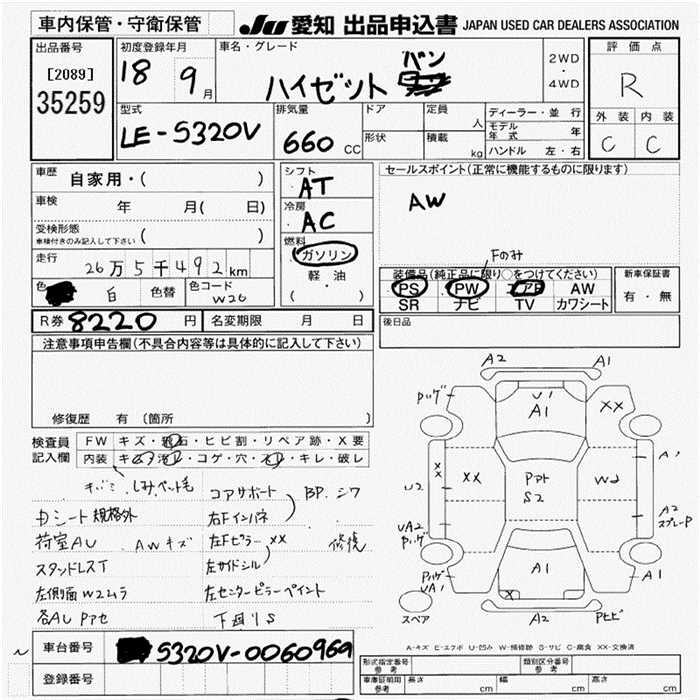 車内保管・守衛保管
JU 愛知 出品申込書 JAPAN USED CAR DEALERS ASSOCIATION
出品番号
[2089]
35259
初度登録年月
18 9 月
車名・グレード
ハイゼット バン
2WD
・
4WD
評価点
R
外装 内装
C C
型式
LE-S320V
排気量
660 CC
ドア
形状
定員
人
積載
kg
ディーラー・並行
モデル年式 年
ハンドル 左・右
車歴
自家用・( )
車検 年 月( 日)
受検形態
車検付きのみ記入して下さい ( )
走行
26万5千492km
色 白 色替
色コード
W26
シフト
AT
冷房
AC
燃料
ガソリン
軽油
( )
セールスポイント(正常に機能するものに限ります)
AW
Fのみ
装備品(純正品に限り○をつけてください)
PS PW エアB AW
SR ナビ TV カワシート
新車保証書
有・無
R券 8220 円
名変期限 月 日
後日品
注意事項申告欄(不具合内容等は具体的に記入して下さい)
修復歴 有 (箇所 )
検査員記入欄
FW キズ・飛石・ヒビ割・リペア跡・X要
内装 コゲ・穴・キレ・破レ
しみ.ペット毛
コアサポート
BP. シワ
Wシート規格外
右Fインパネ
荷室AU
AWキズ
左Fピラー XX
修復
スタッドレスT
左サイドシル
左側面W2ムラ
左センターピラーペイント
各AU
下廻りS
車台番号
S320V-0060969
登録番号
A2 A1
U1
A1
XX
XX
XX
U2
S2
A1
A2
スプレーP
UA2
UA1
A1
A1
X
A2
スペア
A-キズ E-エクボ U-凹み W-補修跡 S-サビ C-腐食 XX-交換済
形式指定番号
参考
類別区分番号
参考
車庫証明用
参考
長さ cm
幅 cm
高さ cm